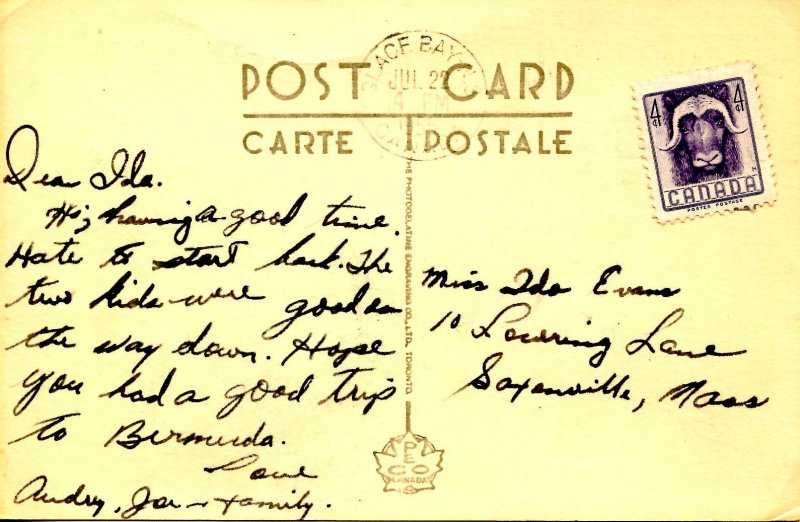 POST CARD
CARTE POSTALE
GLACE BAY
JUL 22
PM
CANADA
4¢ 4¢
CANADA
POSTES POSTAGE
Dear Ida.
Hi, having a good time.
Hate to start back. The
two kids were good on
the way down. Hope
you had a good trip
to Bermuda.
Love
Audry, Joe + family.
THE PHOTOGELATINE ENGRAVING CO., LTD. TORONTO
Miss Ida Evans
10 Lowering Lane
Saxonville, Mass
PECO
CANADA